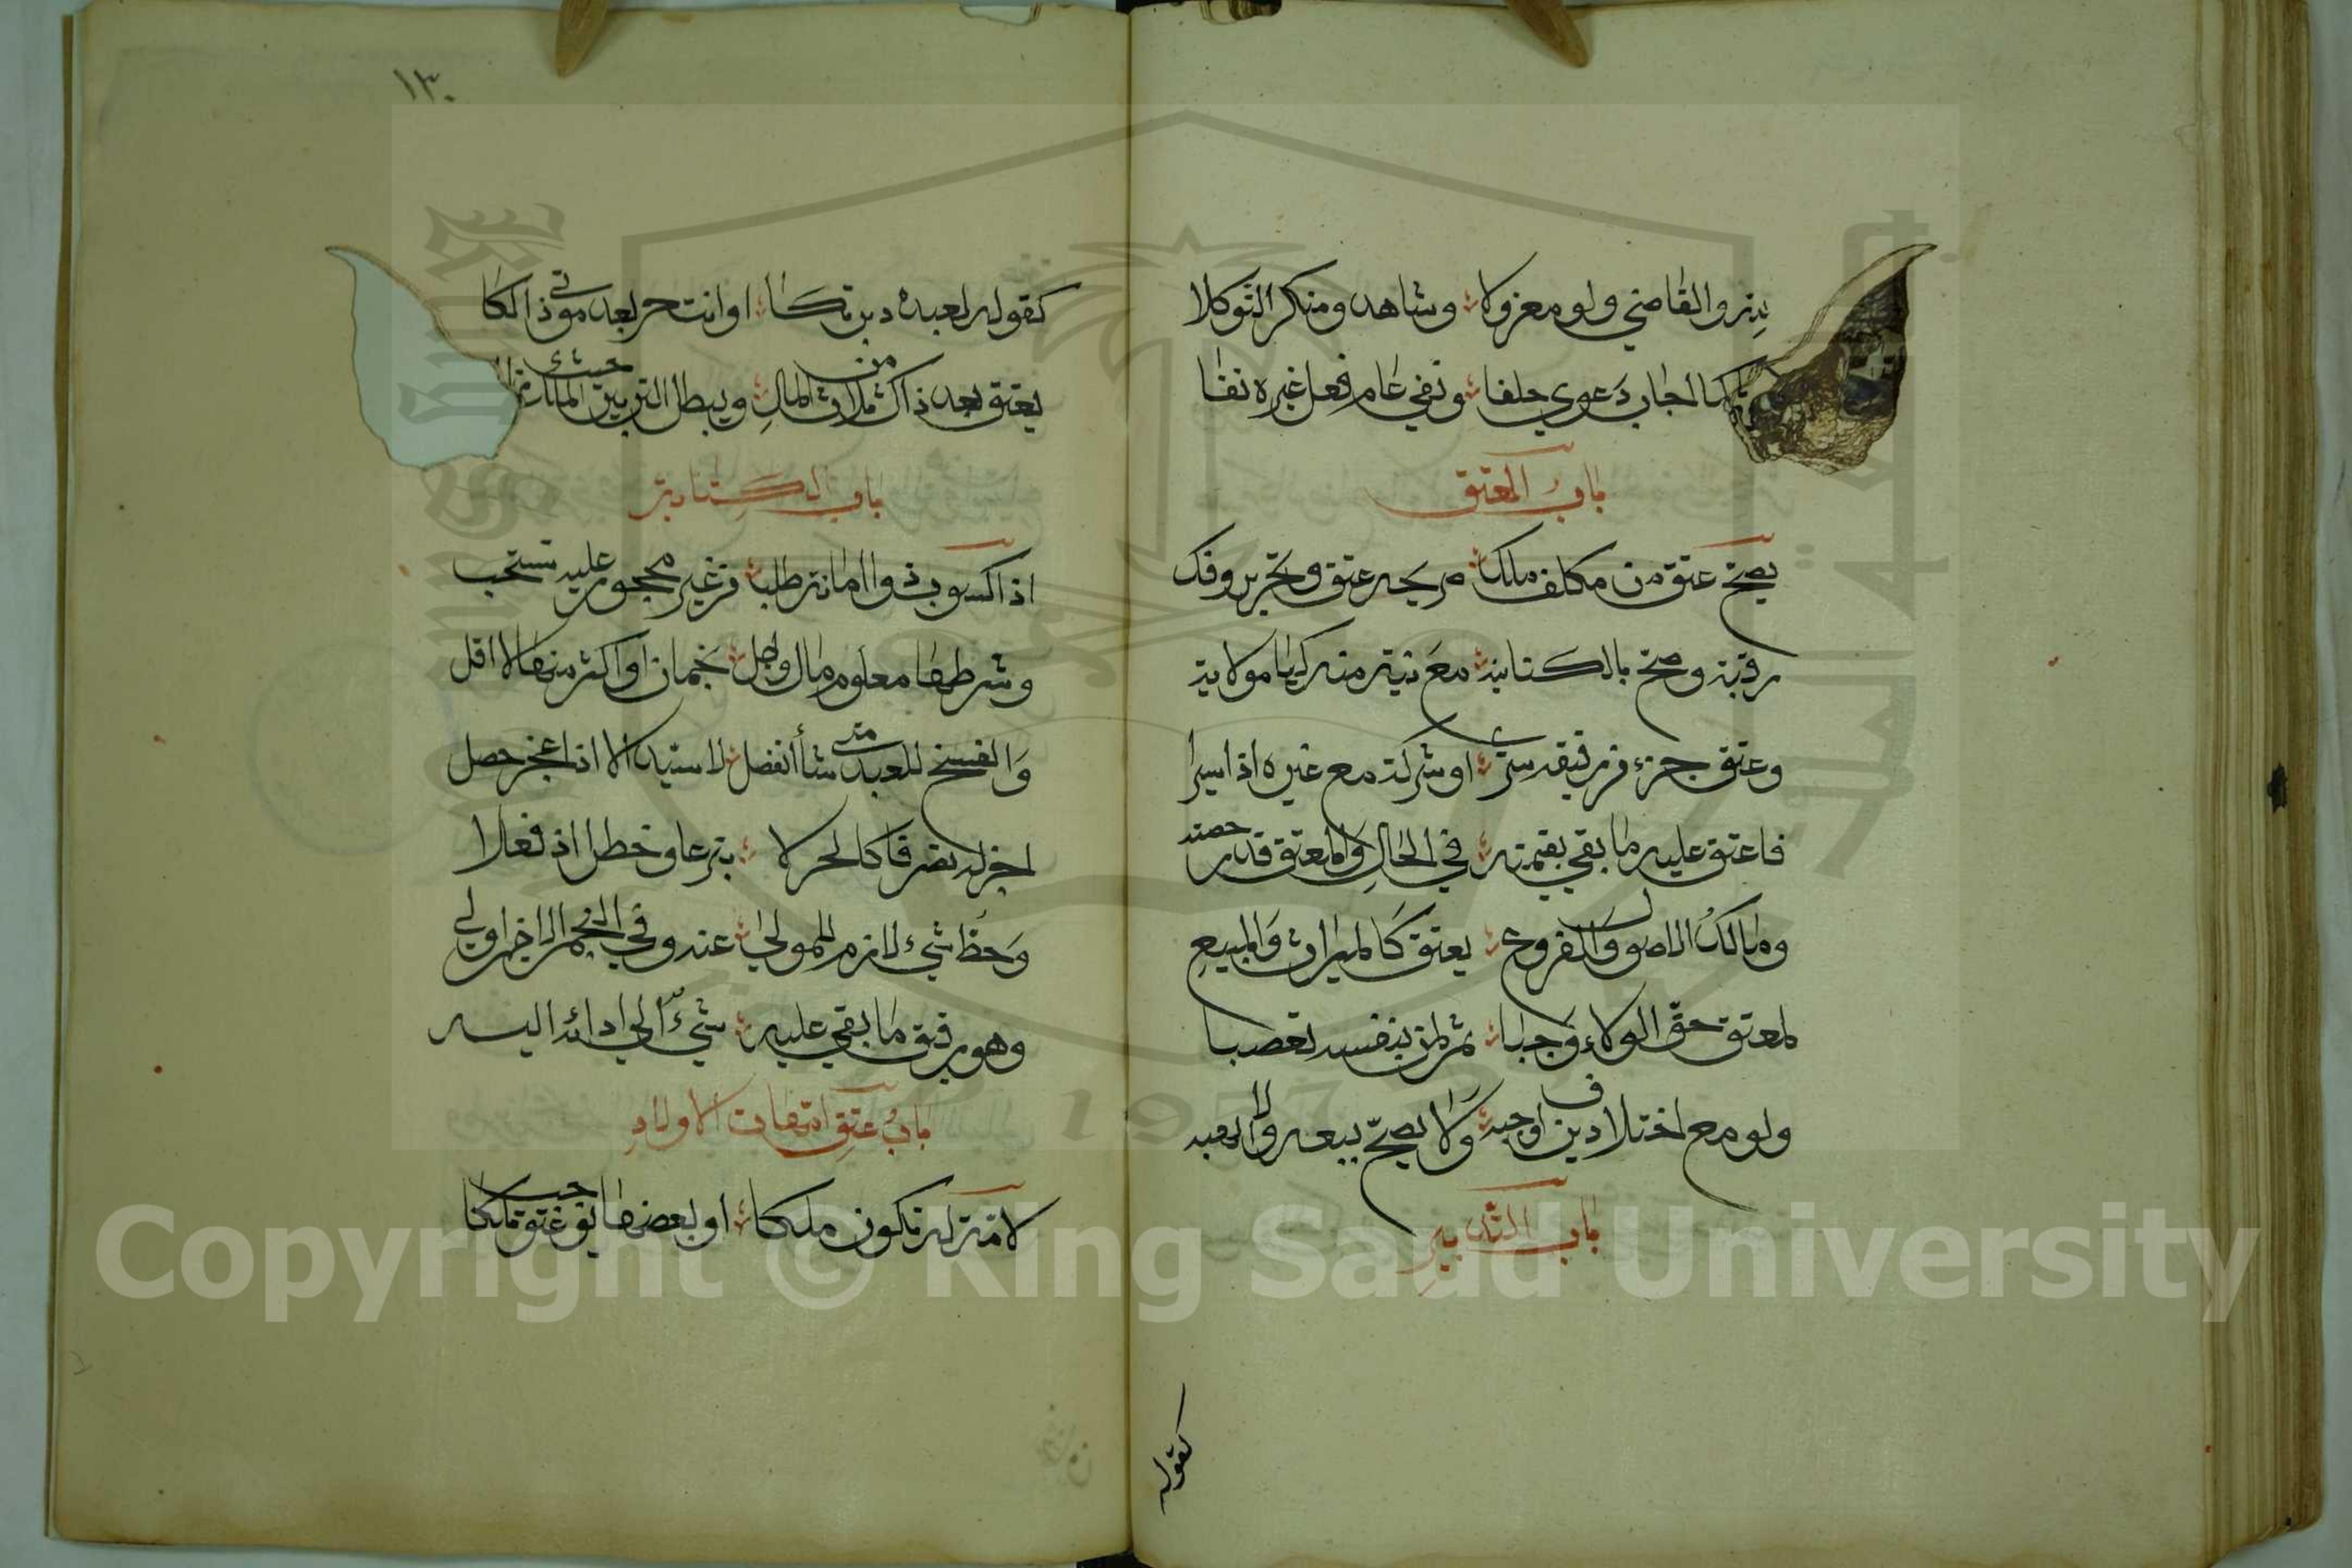 بنر والقاضي ولو معزولا وشاهد ومنكر التوكلا
اجاب دعوى حلفا ونفي عام فعل غيره نفا
باب العتق
يصح عتق من مكلف ملك صريحه عتق وتحرير وفك
رقبة وصح بالكناية مع نية منه كيا مولاية
وعتق جزء من رقيقه سرى او شركة مع غيره اذا ايسرا
فاعتق عليه ما بقي بقيمته في الحال والمعتق قدر حصته
ومالك الاصول والفروع يعتق كالميراث والمبيع
لمعتق حق الولاء وجبا ثم لمن بنفسه تعصبا
ولو مع اختلاف دين اوجبه ولا يصح بيعه ولا الهبه
باب التدبير
كقوله
١٣٠
كقوله لعبده دبرتكا او انت حر بعد موتي ذالكا
يعتق بعده ذاك من ثلاث المال ويبطل التدبير حيث الملك
باب الكتابة
اذا كسوب ذو امانة طلب من غير محجور عليه تستحب
وشرطها معلوم مال واجل نجمان او اكثر منها لا اقل
والفسخ للعبد متى شأ انفصل لا سيد الا اذا عجز حصل
اجز له تصرفا كالحر لا تبرعا وخطرا اذ فعلا
وحط شيء لازم للمولى عنه وفي النجم الاخير اولى
وهو رقيق ما بقي عليه شيء الى ادائه اليه
باب عتق امهات الاولاد
لامة له تكون ملكا او بعضها
Copyright © King Saud University
1957